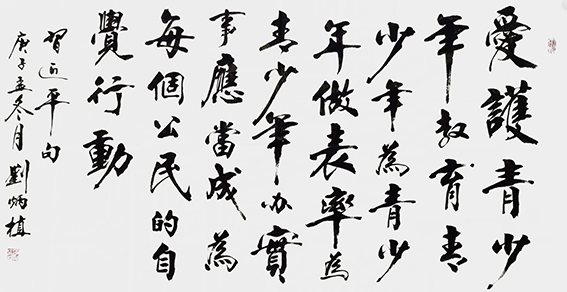 愛護青少
年教育青
少年為青少
年做表率為
青少年办實
事應當成為
每個公民的自
覺行動
習近平句
庚子孟冬月劉炳植